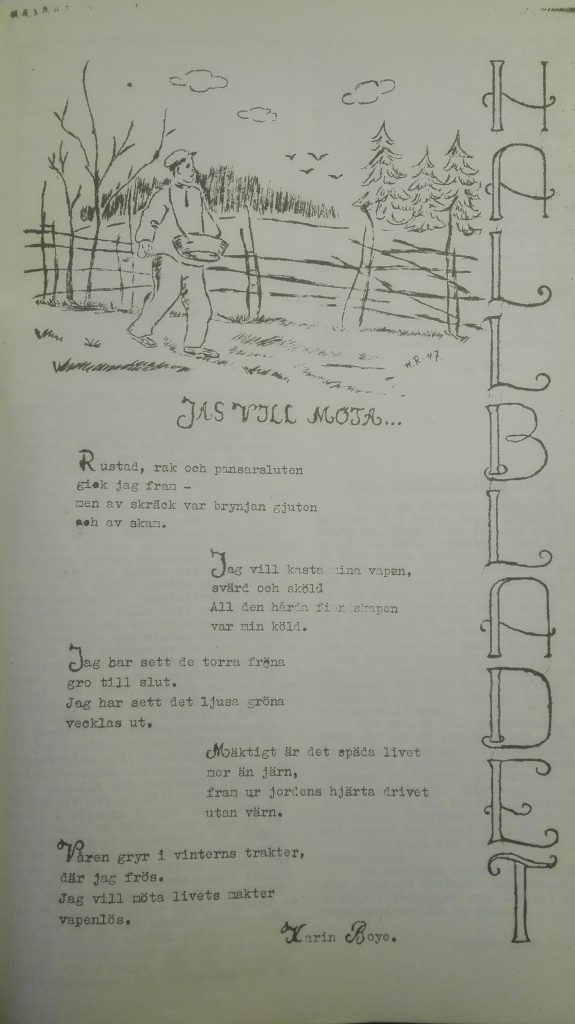 HALLBLADET
H.R-47.
JAG VILL MÖTA...
Rustad, rak och pansarsluten
gick jag fram -
men av skräck var brynjan gjuten
och av skam.
Jag vill kasta mina vapen,
svärd och sköld
All den hårda fiendskapen
var min köld.
Jag har sett de torra fröna
gro till slut.
Jag har sett det ljusa gröna
vecklas ut.
Mäktigt är det späda livet
mer än järn,
fram ur jordens hjärta drivet
utan värn.
Våren gryr i vinterns trakter,
där jag frös.
Jag vill möta livets makter
vapenlös.
Karin Boye.